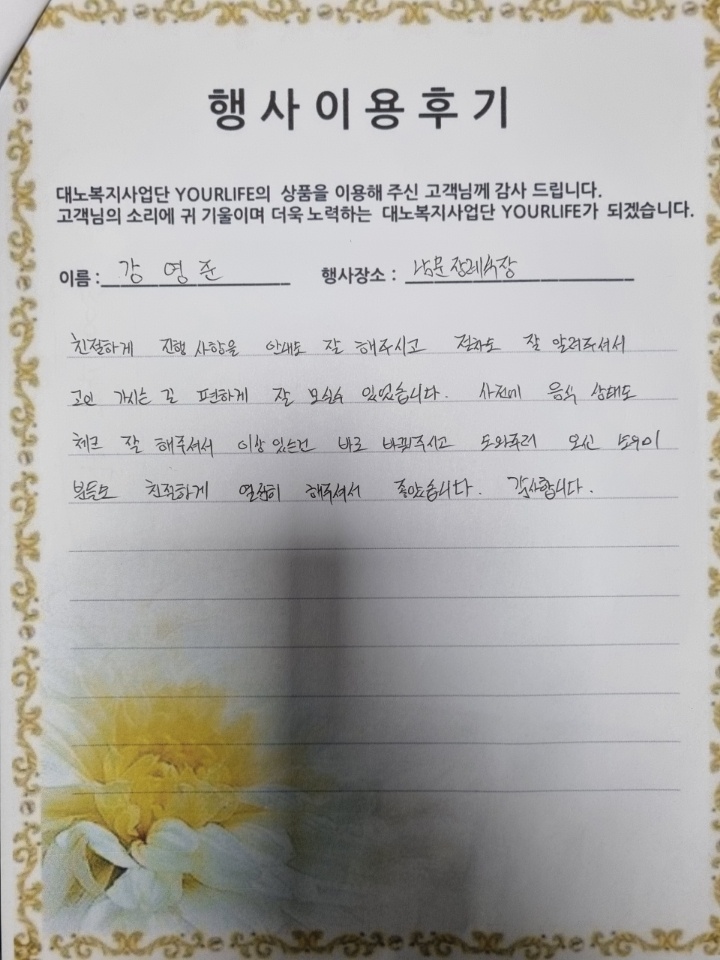 행사이용후기
대노복지사업단 YOURLIFE의 상품을 이용해 주신 고객님께 감사 드립니다.
고객님의 소리에 귀 기울이며 더욱 노력하는 대노복지사업단 YOURLIFE가 되겠습니다.
이름 : 강영준 행사장소 : 남문장례식장
친절하게 진행 사항을 안내도 잘 해주시고 절차도 잘 알려주셔서
고인 가시는 길 편하게 잘 모실수 있었습니다. 사전에 음식 상태도
체크 잘 해주셔서 이상 있는건 바로 바꿔주시고 도와주러 오신 도우미
분들도 친절하게 열심히 해주셔서 좋았습니다. 감사합니다.